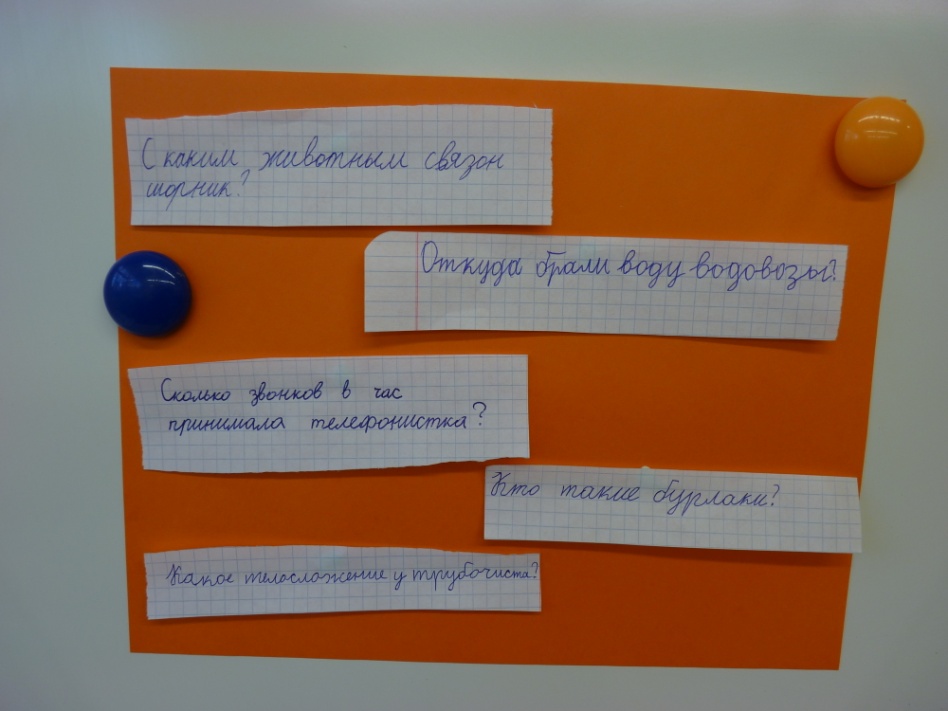 С каким животным связон
шорник?
Откуда брали воду водовозы?
Сколько звонков в час
принимала телефонистка?
Кто такие бурлаки?
Какое телосложение у трубочиста?